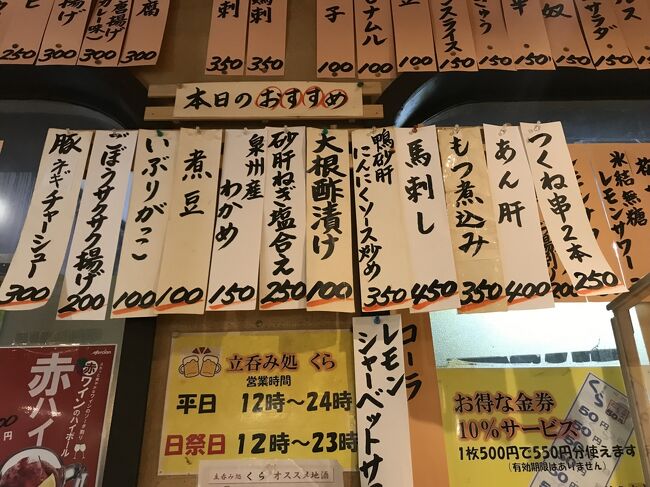 250
揚げ
350
揚げ
カレー味
300
腐
300
刺
350
鶏刺
350
子
100
ナムル
100
豆
100
スライス
150
きゅう
150
半
150
奴
150
サラダ
200
ルス
本日のおすすめ
豚ネギチャーシュー
300
ごぼうサクサク揚げ
200
いぶりがっこ
100
煮豆
100
泉州産わかめ
150
砂肝ねぎ塩合え
250
大根酢漬け
100
鴨砂肝
にんにくソース炒め
350
馬刺し
450
もつ煮込み
350
あん肝
400
つくね串2本
250
氷結無糖
レモンサワー
コーラ
レモン
シャーベットサ
立呑み処 くら
営業時間
平日 12時~24時
日祭日 12時~23時
立呑み処 くら オススメ地酒
お得な金券
10%サービス
1枚500円で550円分使えます
(有効期限はありません)
くら
50円
50円
50円
Mercian
赤ワインのハイボール
赤ハイ